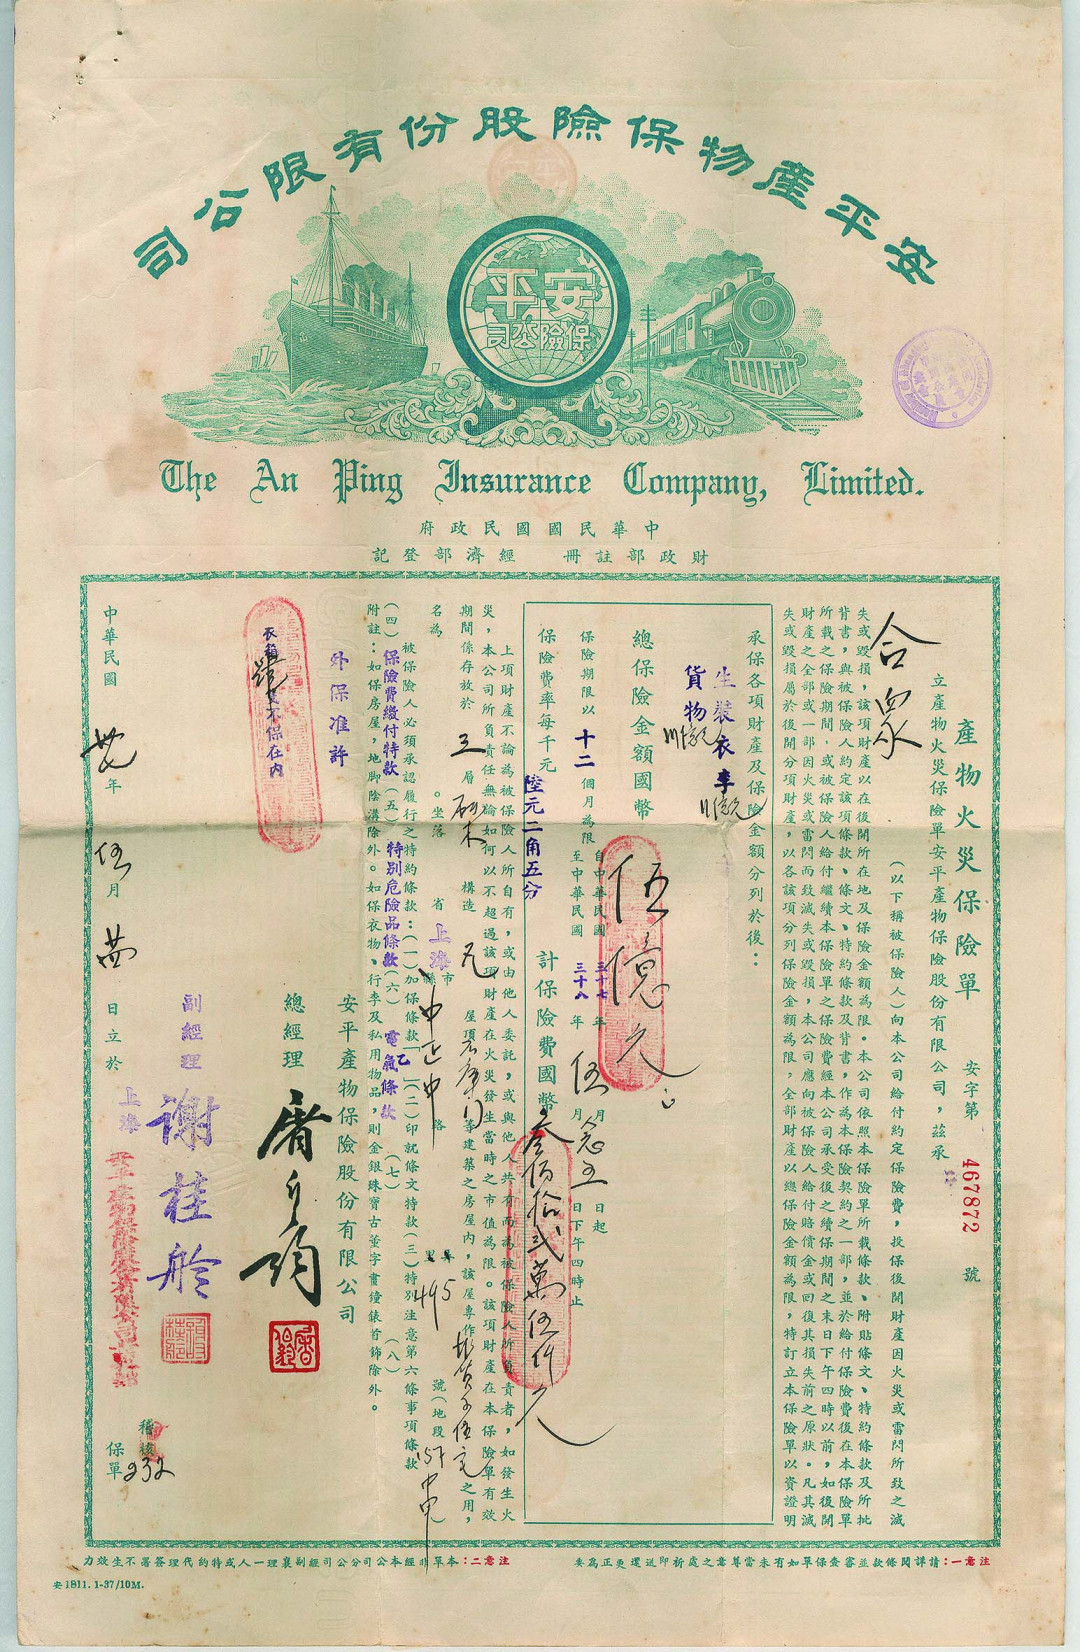 安平產物保險股份有限公司
安平
保險公司
The An Ping Insurance Company, Limited.
中華民國國民政府
財政部註冊 經濟部登記
產物火災保險單 安字第 467872 號
立產物火災保險單安平產物保險股份有限公司，茲承
合眾
（以下稱被保險人）向本公司給付約定保險費，投保後開財產因火災或雷閃所致之滅
失或毀損，該項財產以在後開所在地及保險金額為限。本公司依照本保險單所載條款、附貼條文、特約條款及所批
背書，與被保險人約定該項條款、條文、特約條款及背書，作為本保險契約之一部，並於給付保險費後在本保險單
所載之保險期間，或被保險人給付繼續本保險單之保險費經本公司承受後之續保期間之末日下午四時以前，如後開
財產之全部或一部因火災或雷閃而致滅失或毀損，本公司應向被保險人給付賠償金或回復其損失前之原狀。凡其滅
失或毀損屬於後開分項財產，以各該項分列保險金額為限，全部財產以總保險金額為限，特訂立本保險單以資證明
承保各項財產及保險金額分列於後：
生裝衣李
貨物
總保險金額國幣 伍億元
保險期限以 十二 個月為限 自中華民國 三十七 年 伍 月 念五 日起
至中華民國 三十八 年 月 日下午四時止
保險費率每千元 陸元二角五分 計保險費國幣 叁佰拾貳萬伍仟元
上項財產不論為被保險人所自有，或由他人委託，或與他人共有而為被保險人所負責者，如發生火
災，本公司所負責任無論如何以不超過該項財產在火災發生當時之市值為限。該項財產在本保險單有效
期間係存放於 三 層 磚木 構造 瓦 屋頂 等建築之房屋內，該屋專作 之用，
名為 。坐落 省 上海 市縣 中正中 路 495 號（地段 157
被保險人必須承認履行之特約條款：（一）加保條款「乙」（二）印就條文特款（三）特別注意第六條事項條款
（四）保險費繳付特款（五）特別危險品條款（六）電氣條款（七） （八）
附註：如保房屋，地腳陰溝除外。如保衣物、行李及私用物品，則金銀珠寶古董字畫鐘錶首飾除外。
外保准許
不保在內
安平產物保險股份有限公司
總經理
副經理 謝桂
中華民國 卅七 年 伍 月 日立於 上海
稽核
保單 232
注意一：請詳閱條款並審查保單如有未當尊意之處祈即送還更正為要
注意二：本單非經本公司分公司經副襄理一人或特約代理簽署不生效力
安1811. 1-37/10M.